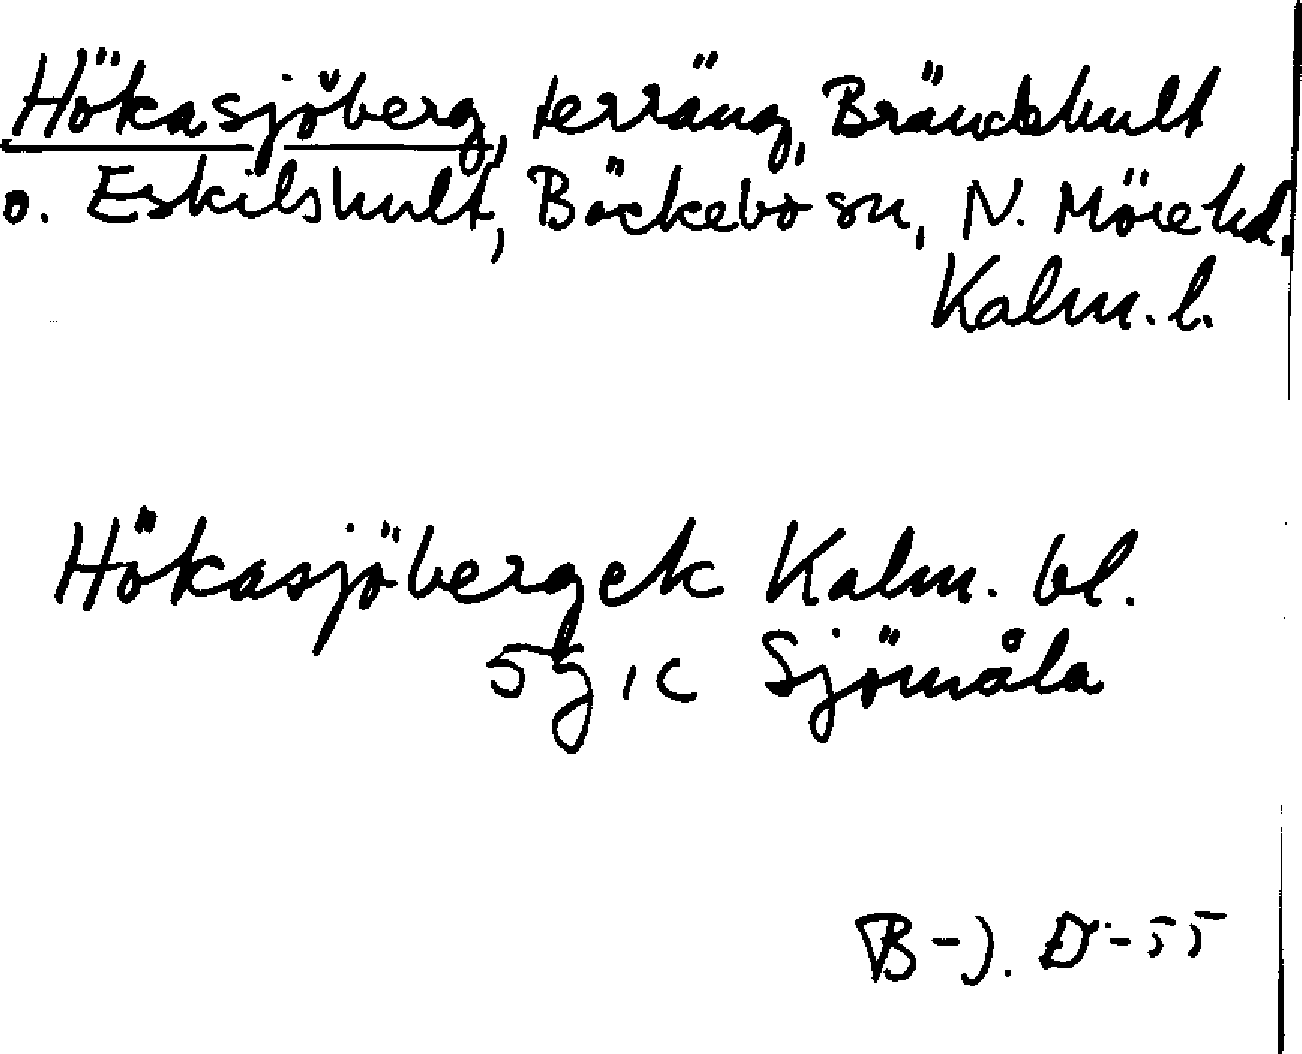 Hökasjöberg, terräng, Brändehult
o. Eskilshult, Bäckebo sn, N. Möre hd,
Kalm. l.
Hökasjöberg ek Kalm. bl.
5g, c Sjömåla
B-J. D-55